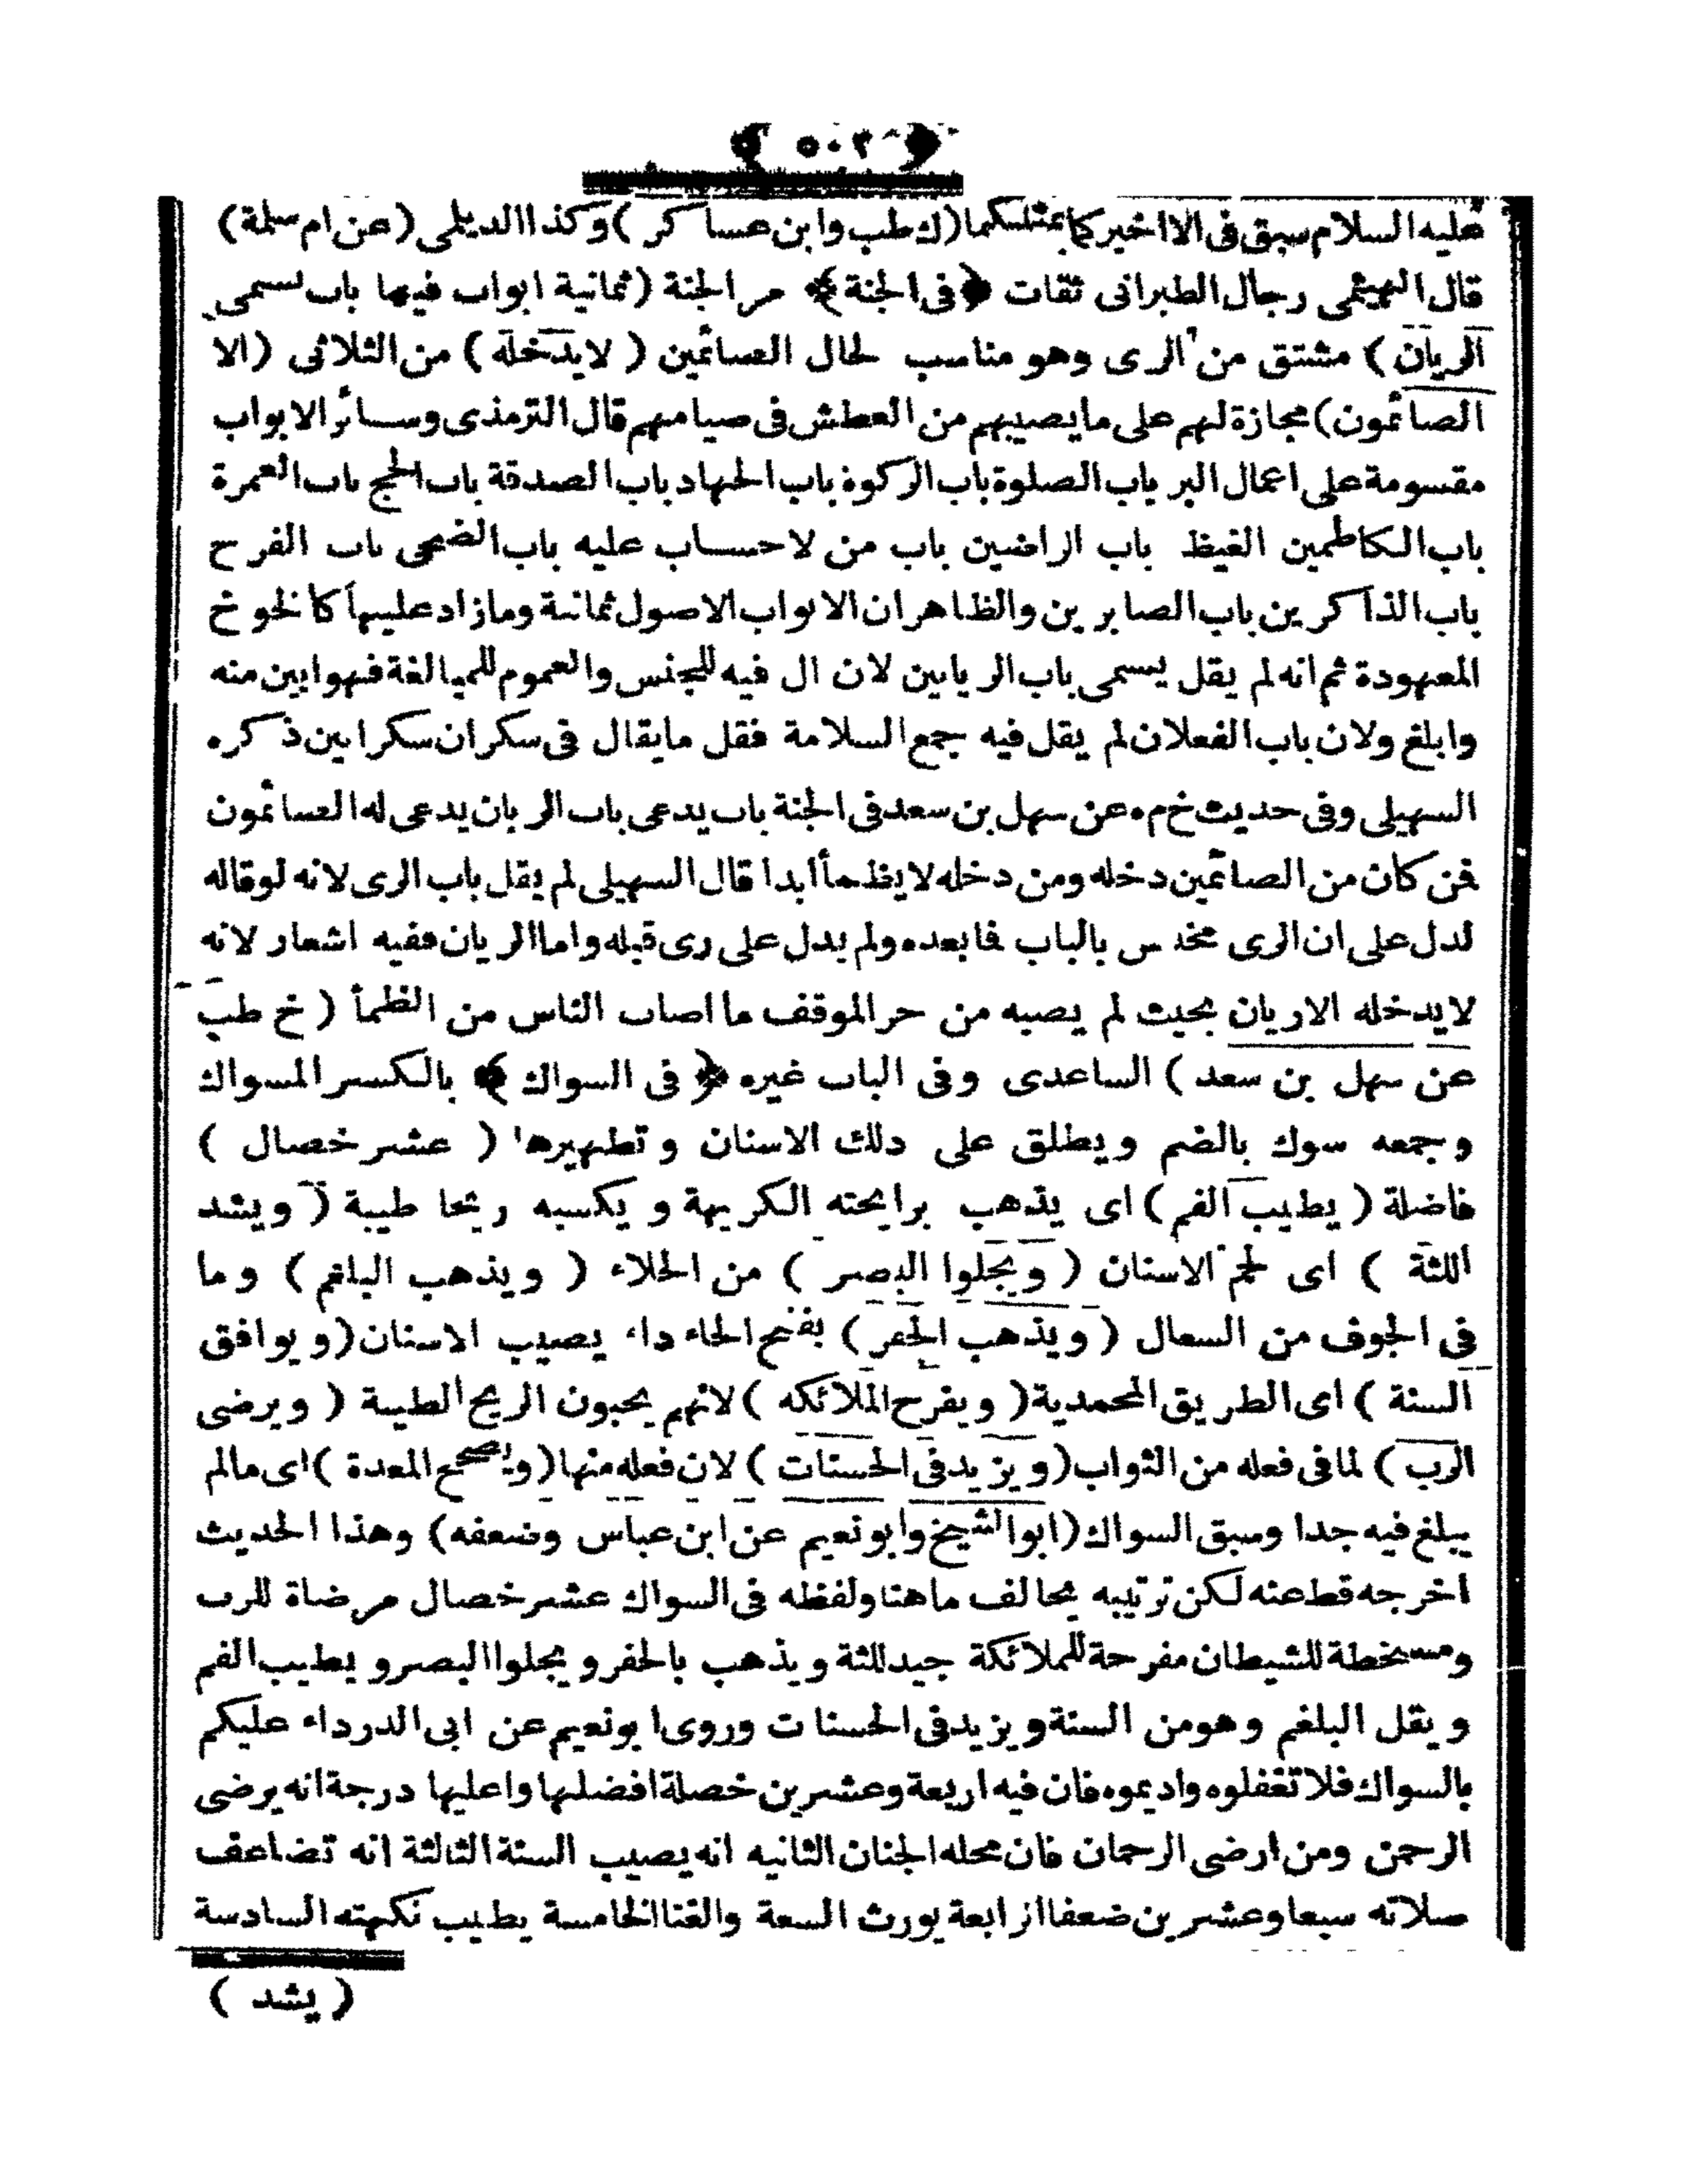 ﴿ ٥٠٣ ﴾
عليه السلام سبق فى الا اخبركما بمثلكما (ك طب وابن عساكر) وكذا الديلمى (عن ام سلمة)
قال الهيثمى رجال الطبرانى ثقات ﴿فى الجنة﴾ مر الجنة (ثمانية ابواب فيها باب يسمى
الريان) مشتق من الرى وهو مناسب لحال الصائمين (لايدخله) من الثلاثى (الا
الصائمون) مجازة لهم على مايصيبهم من العطش فى صيامهم قال الترمذى وسائر الابواب
مقسومة على اعمال البر باب الصلوة باب الزكوة باب الجهاد باب الصدقة باب الحج باب العمرة
باب الكاظمين الغيظ باب الراضين باب من لاحساب عليه باب الضحى باب الفرح
باب الذاكرين باب الصابرين والظاهر ان الابواب الاصول ثمانية ومازاد عليها كالخوخ
المعهودة ثم انه لم يقل يسمى باب الريابين لان ال فيه للجنس والعموم للمبالغة فهو ابين منه
وابلغ ولان باب الفعلان لم يقل فيه جمع السلامة فقل مايقال فى سكران سكرابين ذكره
السهيلى وفى حديث خ م ه عن سهل بن سعد فى الجنة باب يدعى باب الريان يدعى له الصائمون
فمن كان من الصائمين دخله ومن دخله لايظمأ أبدا قال السهيلى لم يقل باب الرى لانه لو قاله
لدل على ان الرى مختص بالباب فما بعده ولم يدل على رى قبله واما الريان ففيه اشعار لانه
لايدخله الاريان بحيث لم يصبه من حر الموقف ما اصاب الناس من الظمأ (خ طب
عن سهل بن سعد) الساعدى وفى الباب غيره ﴿فى السواك﴾ بالكسر المسواك
وجمعه سوك بالضم ويطلق على دلك الاسنان وتطهيرها (عشر خصال)
فاضلة (يطيب الفم) اى يذهب برايحته الكريهة ويكسبه ريحا طيبة (ويشد
اللثة) اى لحم الاسنان (ويجلوا البصر) من الجلاء (ويذهب البلغم) وما
فى الجوف من السعال (ويذهب الحفر) بفتح الحاء داء يصيب الاسنان (ويوافق
السنة) اى الطريق المحمدية (ويفرح الملائكه) لانهم يحبون الريح الطيبة (ويرضى
الرب) لما فى فعله من الثواب (ويزيد فى الحسنات) لان فعله منها (ويصحح المعدة) اى مالم
يبلغ فيه جدا وسبق السواك (ابوا الشيخ وابو نعيم عن ابن عباس وضعفه) وهذا الحديث
اخرجه قط عنه لكن ترتيبه يخالف ما هنا ولفظه فى السواك عشر خصال مرضاة للرب
ومسخطة للشيطان مفرحة للملائكة جيد للثة ويذهب بالحفر ويجلوا البصر ويطيب الفم
ويقل البلغم وهو من السنة ويزيد فى الحسنات وروى ابو نعيم عن ابى الدرداء عليكم
بالسواك فلا تغفلوه واديموه فان فيه اربعة وعشرين خصلة افضلها واعليها درجة انه يرضى
الرحمن ومن ارضى الرحمان فان محله الجنان الثانيه انه يصيب السنة الثالثة انه تضاعف
صلاته سبعا وعشرين ضعفا الرابعة يورث السعة والغنا الخامسة يطيب نكهته السادسة
(يشد)